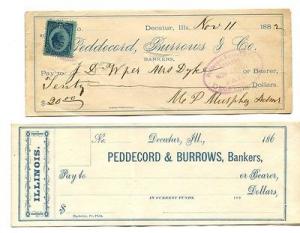 No. Decatur, Ills. Nov 11 1882
Peddecord, Burrows & Co.
BANKERS,
Pay to J. D. Wper Mrs Dyke or Bearer,
Dollars,
20.00 M. P. Murphy
No. Decatur, Ill., 186
PEDDECORD & BURROWS, Bankers,
Pay to or Bearer,
Dollars,
$ IN CURRENT FUNDS. 186
ILLINOIS.